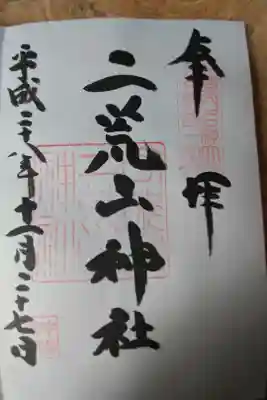 奉拝
二荒山神社
平成二十八年十一月二十七日